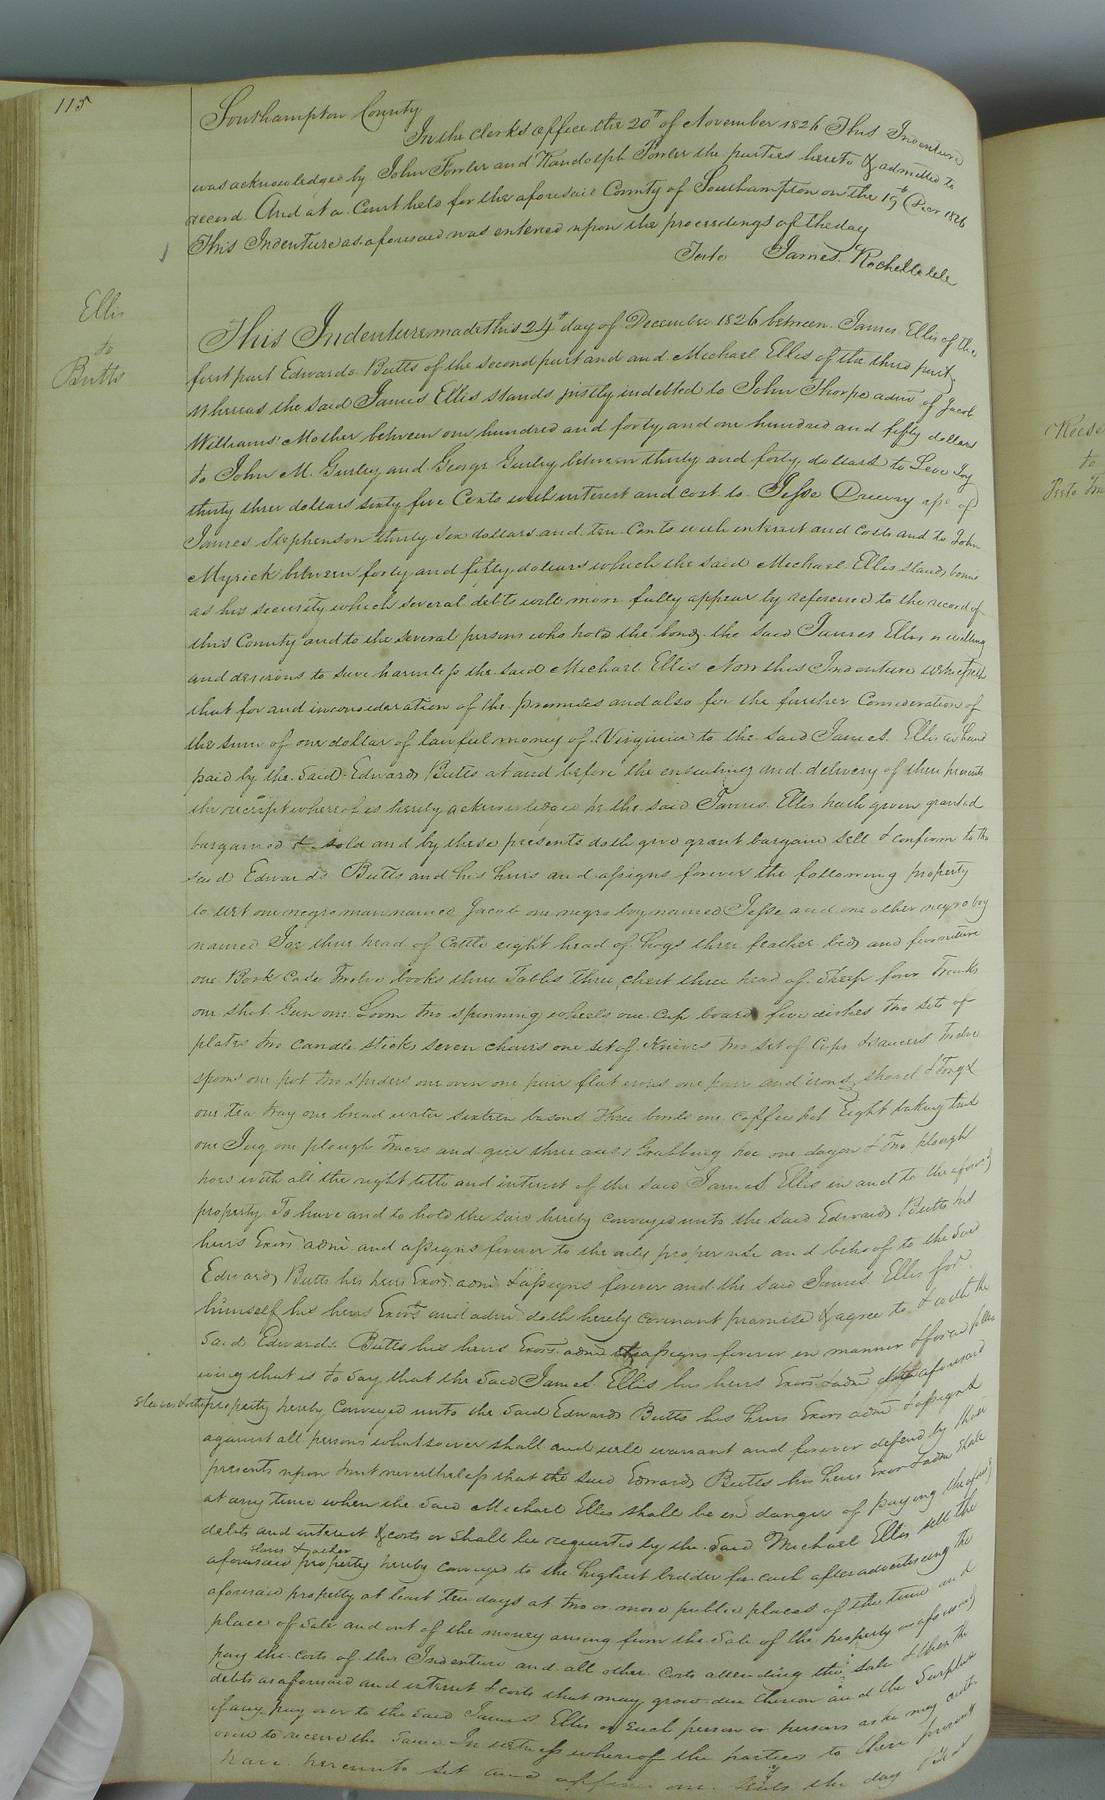 115
Southampton County
In the clerks office the 20th of November 1826 This Indenture
was acknowledged by John Fowler and Randolph Fowler the parties hereto & admitted to
record And at a Court held for the aforesaid County of Southampton on the 19th Decr 1826
This Indenture as aforesaid was entered upon the proceedings of the day
Teste James Rochelle clk
Ellis
to
Butts
This Indenture made this 24th day of December 1826 between James Ellis of the
first part Edwards Butts of the second part and and Michael Ellis of the third party
Whereas the said James Ellis stands justly indebted to John Thorpe admr of Jacob
Williams Mother between one hundred and forty and one hundred and fifty dollars
to John M. Gurley and George Gurley between thirty and forty dollars to Levi Joy
thirty three dollars sixty five Cents with interest and cost to Jesse Drewry asse of
James Stephenson thirty six dollars and ten Cents with interest and costs and to John
Myrick between forty and fifty dollars which the said Michael Ellis stands bound
as his security which several debts will more fully appear by reference to the record of
this County and to the several persons who hold the bonds the said James Ellis is willing
and desirous to save harmless the said Michael Ellis Now this Indenture witnesseth
that for and in consideration of the premises and also for the further Consideration of
the sum of one dollar of lawful money of Virginia to the said James Ellis in hand
paid by the said Edwards Butts at and before the ensealing and delivery of these presents
the receipt whereof is hereby acknowledged he the said James Ellis hath given granted
bargained & sold and by these presents doth give grant bargain sell & confirm to the
said Edwards Butts and his heirs and assigns forever the following property
to wit one negro man named Jacob one negro boy named Jesse and one other negro boy
named Joe three head of Cattle eight head of hogs three feather beds and furniture
one Book Case Twelve books three Tables three chest three head of Sheep four Trunks
one shot Gun one Loom two spinning wheels one cup board five dishes two sets of
plates two candle sticks seven chairs one set of Knives two set of Cups & saucers Twelve
spoons one pot two spiders one oven one pair flat irons one pair and irons shovel & Tongs
one tea tray one bread waiter sixteen basons three bowls one Coffee pot Eight baking tins
one Jug one plough traces and gear three axes 1 Grubbing hoe one dagon & two plough
hoes with all the right title and interest of the said James Ellis in and to the aforesd
property To have and to hold the said hereby conveyed unto the said Edwards Butts his
heirs Exors admr and assigns forever to the only proper use and behoof to the said
Edwards Butts his heirs Exors admr & assigns forever and the said James Ellis for
himself his heirs Exors and admr doth hereby covenant promise & agree to & with the
said Edwards Butts his heirs Exors admr assigns forever in manner & form follo
wing that is to say that the said James Ellis his heirs Exors & admr aforesaid
property hereby Conveyed unto the said Edwards Butts his heirs Exors admr & assigns
against all persons whatsoever shall and will warrant and forever defend by these
presents upon trust nevertheless that the said Edwards Butts his heirs Exor & admr shall
at any time when the said Michael Ellis shall be in danger of paying the aforesd
debts and interest & costs or shall be requested by the said Michael Ellis sell the
slaves & other
aforesaid property hereby conveyed to the highest bidder for cash after advertising the
aforesaid property at least ten days at two or more public places of the time and
place of sale and out of the money arising from the sale of the property as aforesd
pay the costs of this Indenture and all other Costs attending the sale & then the
debts as aforesaid and interest & costs that may grow due thereon and the Surplus
if any pay over to the said James Ellis or such person or persons as he may auth
orise to receive the same In witness whereof the parties to these presents
have hereunto set and affixed our seals the day
to